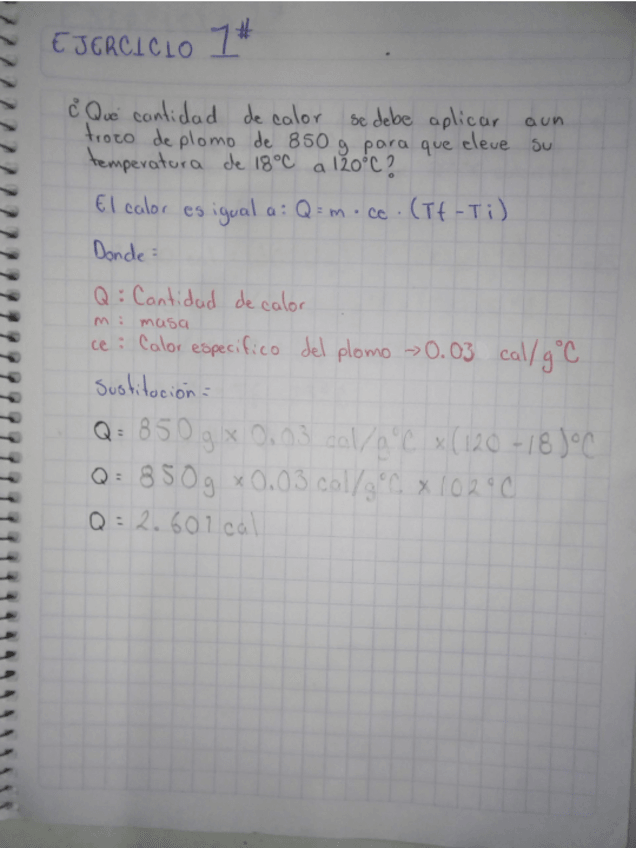 EJERCICIO 1#
¿Que cantidad de calor se debe aplicar aun
trozo de plomo de 850 g para que eleve su
temperatura de 18°C a 120°C?
El calor es igual a: Q=m · ce · (Tf -Ti)
Donde:
Q: Cantidad de calor
m: masa
ce: Calor especifico del plomo → 0.03 cal/g°C
Sustitución=
Q= 850g x 0.03 cal/g°C x (120 -18)°C
Q= 850g x 0.03 cal/g°C x 102°C
Q= 2.601 cal